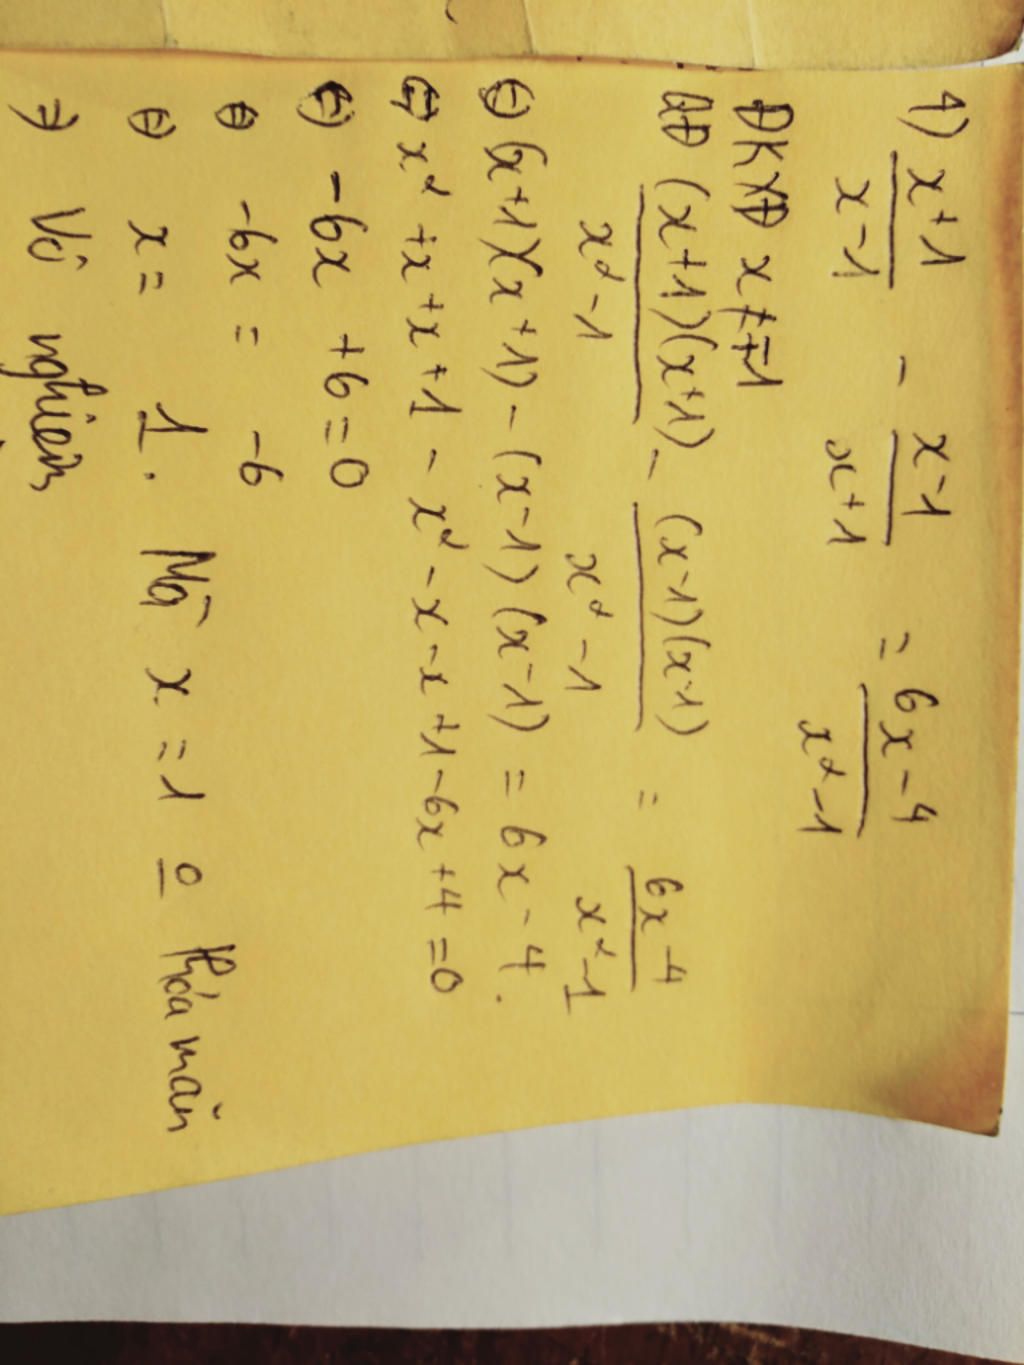 1) x+1/x-1 - x-1/x+1 = 6x-4/x²-1
ĐKXĐ x ≠ ±1
QĐ (x+1)(x+1)/x²-1 - (x-1)(x-1)/x²-1 = 6x-4/x²-1
⇔ (x+1)(x+1) - (x-1)(x-1) = 6x-4.
⇔ x²+x+x+1 - x² - x - x +1 - 6x +4 = 0
⇔ -6x +6 = 0
⇔ -6x = -6
⇔ x = 1. Mà x = 1 o thỏa mãn
⇒ Vô nghiệm